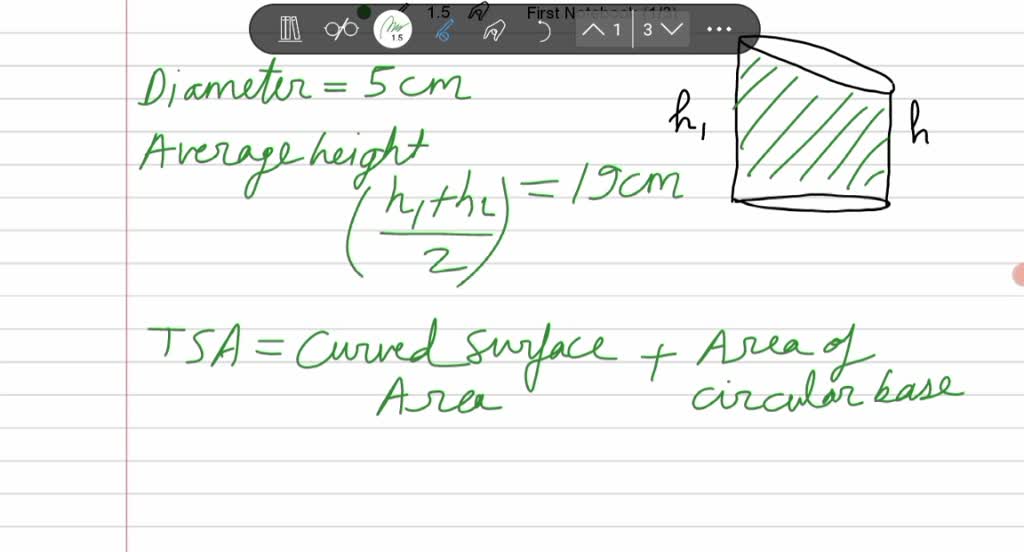 1.5 First Notebook (1/3)
1.5 1 3
Diameter = 5cm
Average height
(h₁+h₂/2) = 19cm
h₁
h
TSA = Curved Surface + Area of
Area circular base